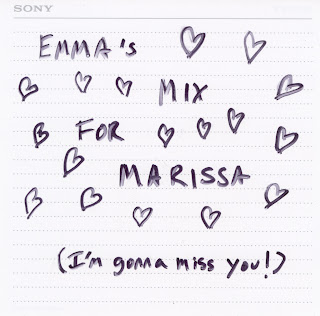 SONY
EMMA's
MIX
FOR
MARISSA
(I'm gonna miss you!)